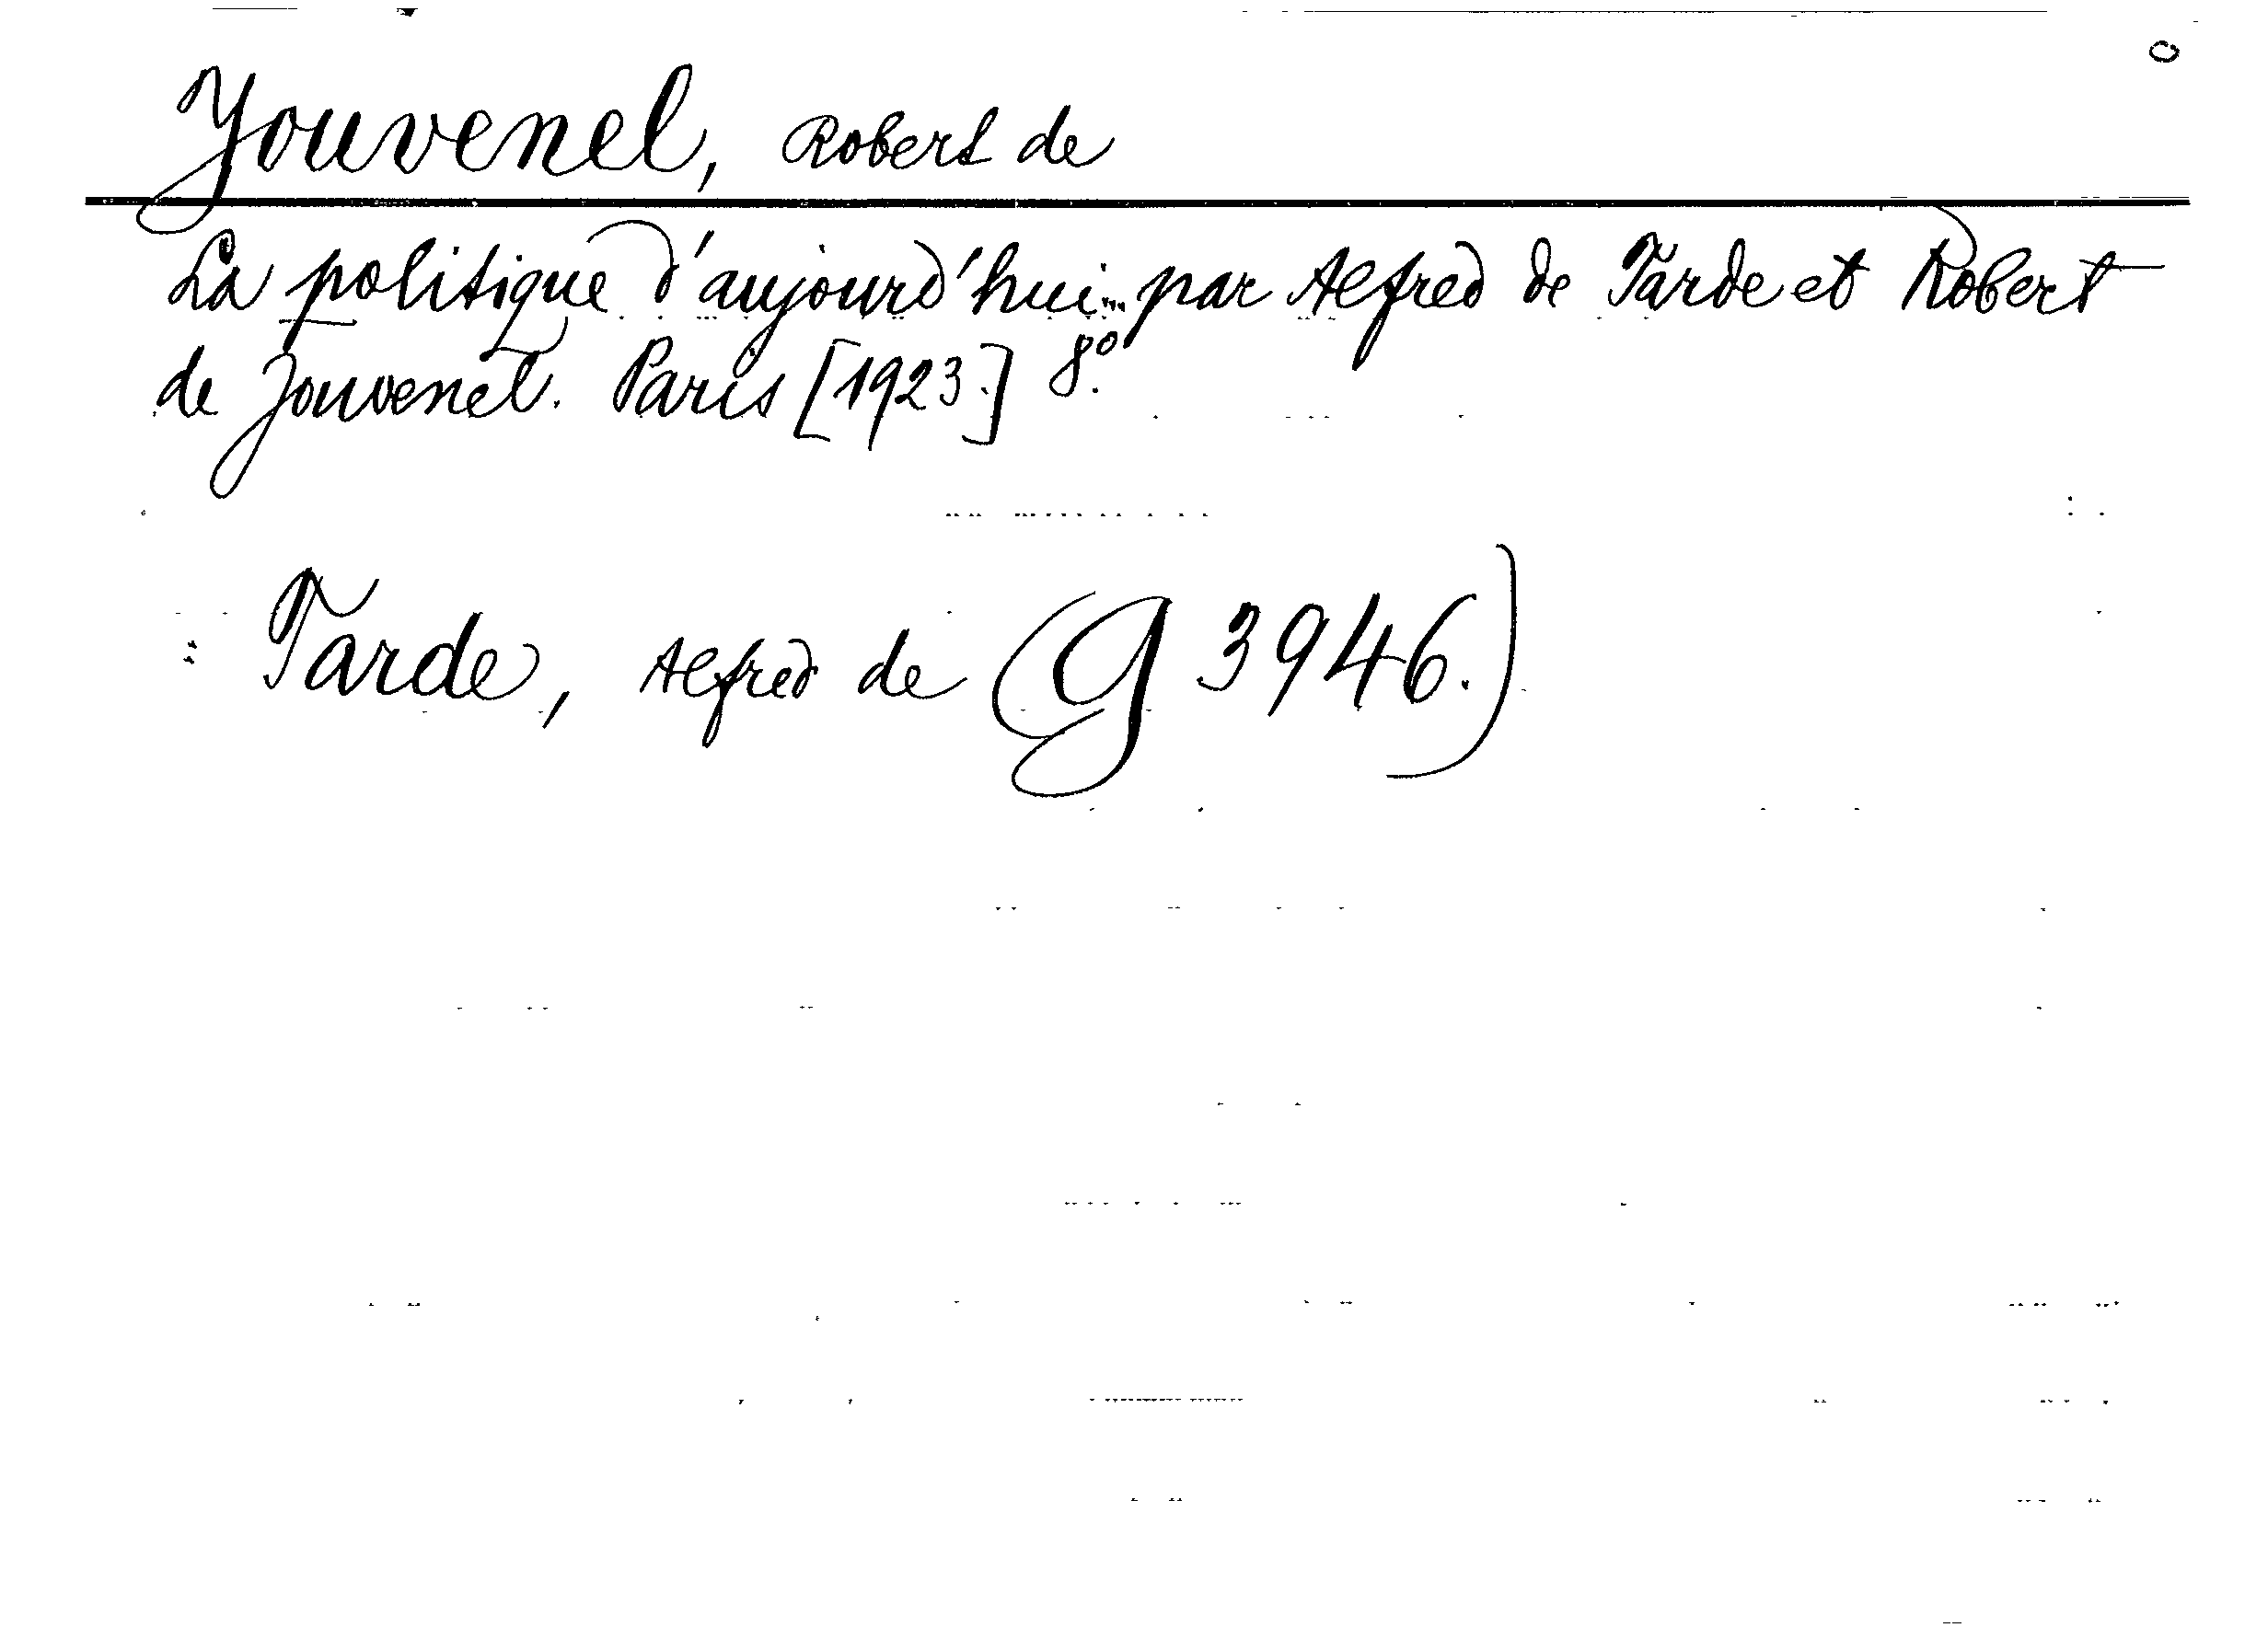 Jouvenel, Robert de
La politique d'aujourd'hui... par Alfred de Tarde et Robert
de Jouvenel. Paris [1923.] 8º.
Tarde, Alfred de (G 3946.)